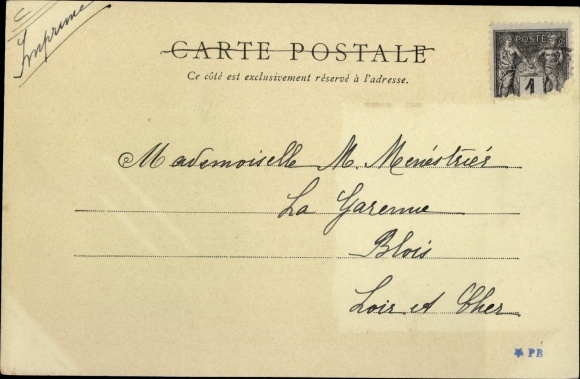 Imprimé
CARTE POSTALE
Ce côté est exclusivement réservé à l'adresse.
POSTE
1
Mademoiselle M. Menéstriés
La Garenne
Blois
Loir et Cher
PB